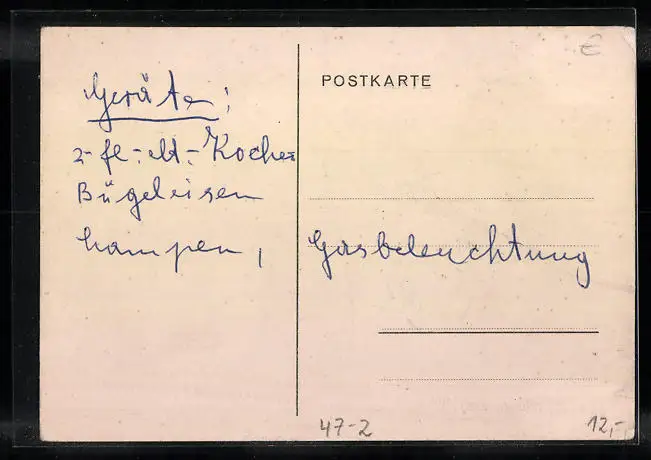 €
POSTKARTE
Geräte:
2-fl.-elt.-Kocher
Bügeleisen
Lampen, Gasbeleuchtung
47-2
12,-